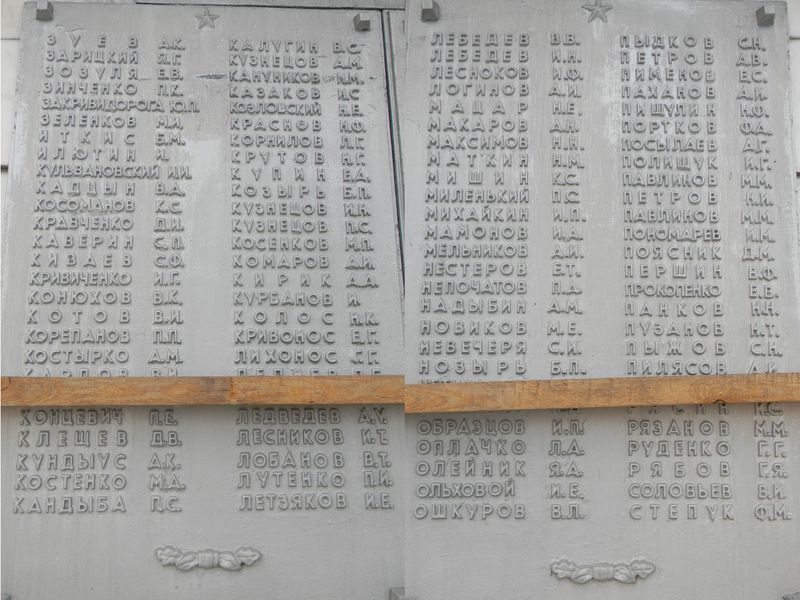 ЗУЕВ А.К.
ЗАРИЦКИЙ Я.Г.
ЗОЗУЛЯ Е.В.
ЗИНЧЕНКО П.К.
ЗАКРИВИДОРОГА Ю.П.
ЗЕЛЕНКОВ М.И.
ИТКИС Б.М.
ИЛЮТИН И.
КУЛЬВАНОВСКИЙ И.И.
КАДЦЫН В.А.
КОСОМАНОВ К.С.
КРАВЧЕНКО Д.И.
КАВЕРИН С.П.
КИВАЕВ С.Ф.
КРИВИЧЕНКО И.Г.
КОНЮХОВ В.К.
КОТОВ В.И.
КОРЕПАНОВ П.П.
КОСТЫРКО А.М.
КАРПОВ В.И.
КОНЦЕВИЧ П.Е.
КЛЕЩЕВ Д.В.
КУНДЫУС А.К.
КОСТЕНКО М.Д.
КАНДЫБА П.С.
КАЛУГИН В.С.
КУЗНЕЦОВ А.М.
КАНУНИКОВ И.М.
КАЗАКОВ И.С
КОЗЛОВСКИЙ Н.Е.
КРАСНОВ Н.Ф.
КОРНИЛОВ Л.Г.
КРУТОВ Н.Г.
КУПИН Е.Д.
КОЗЫРЬ Б.П.
КУЗНЕЦОВ И.Н.
КУЗНЕЦОВ П.С.
КОСЕНКОВ М.П.
КОМАРОВ А.И.
КИРИК А.А.
КУРБАНОВ И.
КОЛОС Н.К.
КРИВОНОС Е.Г.
ЛИХОНОС Г.Г.
ЛЕДВЕДЕВ А.У.
ЛЕСНИКОВ И.Е.
ЛОБАНОВ В.Т.
ЛУТЕНКО П.И.
ЛЕТЗЯКОВ И.Е.
ЛЕБЕДЕВ В.В.
ЛЕБЕДЕВ И.Н.
ЛЕСНОКОВ И.Ф.
ЛОГИНОВ А.И.
МАЦАР Н.Е.
МАКАРОВ А.Н.
МАКСИМОВ Н.Н.
МАТКИН Н.М.
МИШИН К.С.
МИЛЕНЬКИЙ П.С.
МИХАЙКИН И.П.
МАМОНОВ И.Д.
МЕЛЬНИКОВ А.И.
НЕСТЕРОВ Е.Т.
НЕПОЧАТОВ П.А.
НАДЫБИН А.М.
НОВИКОВ М.Е.
НЕВЕЧЕРЯ С.И.
НОЗЫРЬ Б.П.
ОБРАЗЦОВ И.П.
ОПЛАЧКО Л.А.
ОЛЕЙНИК Я.А.
ОЛЬХОВОЙ И.Е.
ОШКУРОВ В.П.
ПЫДКОВ С.Н.
ПЕТРОВ А.В.
ПИМЕНОВ Е.С.
ПАХАНОВ А.И.
ПИЩУЛИН Н.Ф.
ПОРТКОВ Ф.А.
ПОСЫЛАЕВ А.Г.
ПОЛИЩУК И.Г.
ПАВЛИНОВ М.М.
ПЕТРОВ Н.И.
ПАВЛИНОВ М.М.
ПОНОМАРЕВ И.М.
ПОЯСНИК Д.М.
ПЕРШИН В.Ф.
ПРОКОПЕНКО Е.В.
ПАНКОВ Н.Н.
ПУЗАНОВ Н.Т.
ПЫЖОВ С.Н.
ПИЛЯСОВ А.И.
РЯЗАНОВ М.М.
РУДЕНКО Г.Г.
РЯБОВ Г.Я.
СОЛОВЬЕВ В.И.
СТЕПУК Ф.М.